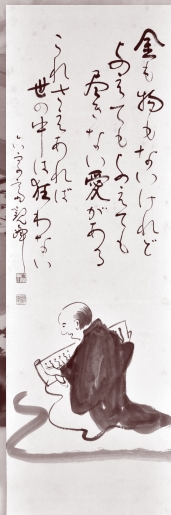 金も物もないけれど
与えても与えても
尽きない愛がある
これさえあれば
世の中は狂わない
観峰